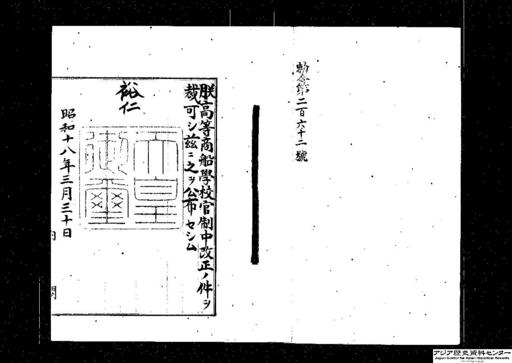 勅令第二百六十二號
朕高等商船學校官制中改正ノ件ヲ
裁可シ茲ニ之ヲ公布セシム
裕仁
天皇
御璽
昭和十八年三月三十日
内閣
アジア歴史資料センター
Japan Center for Asian Historical Records